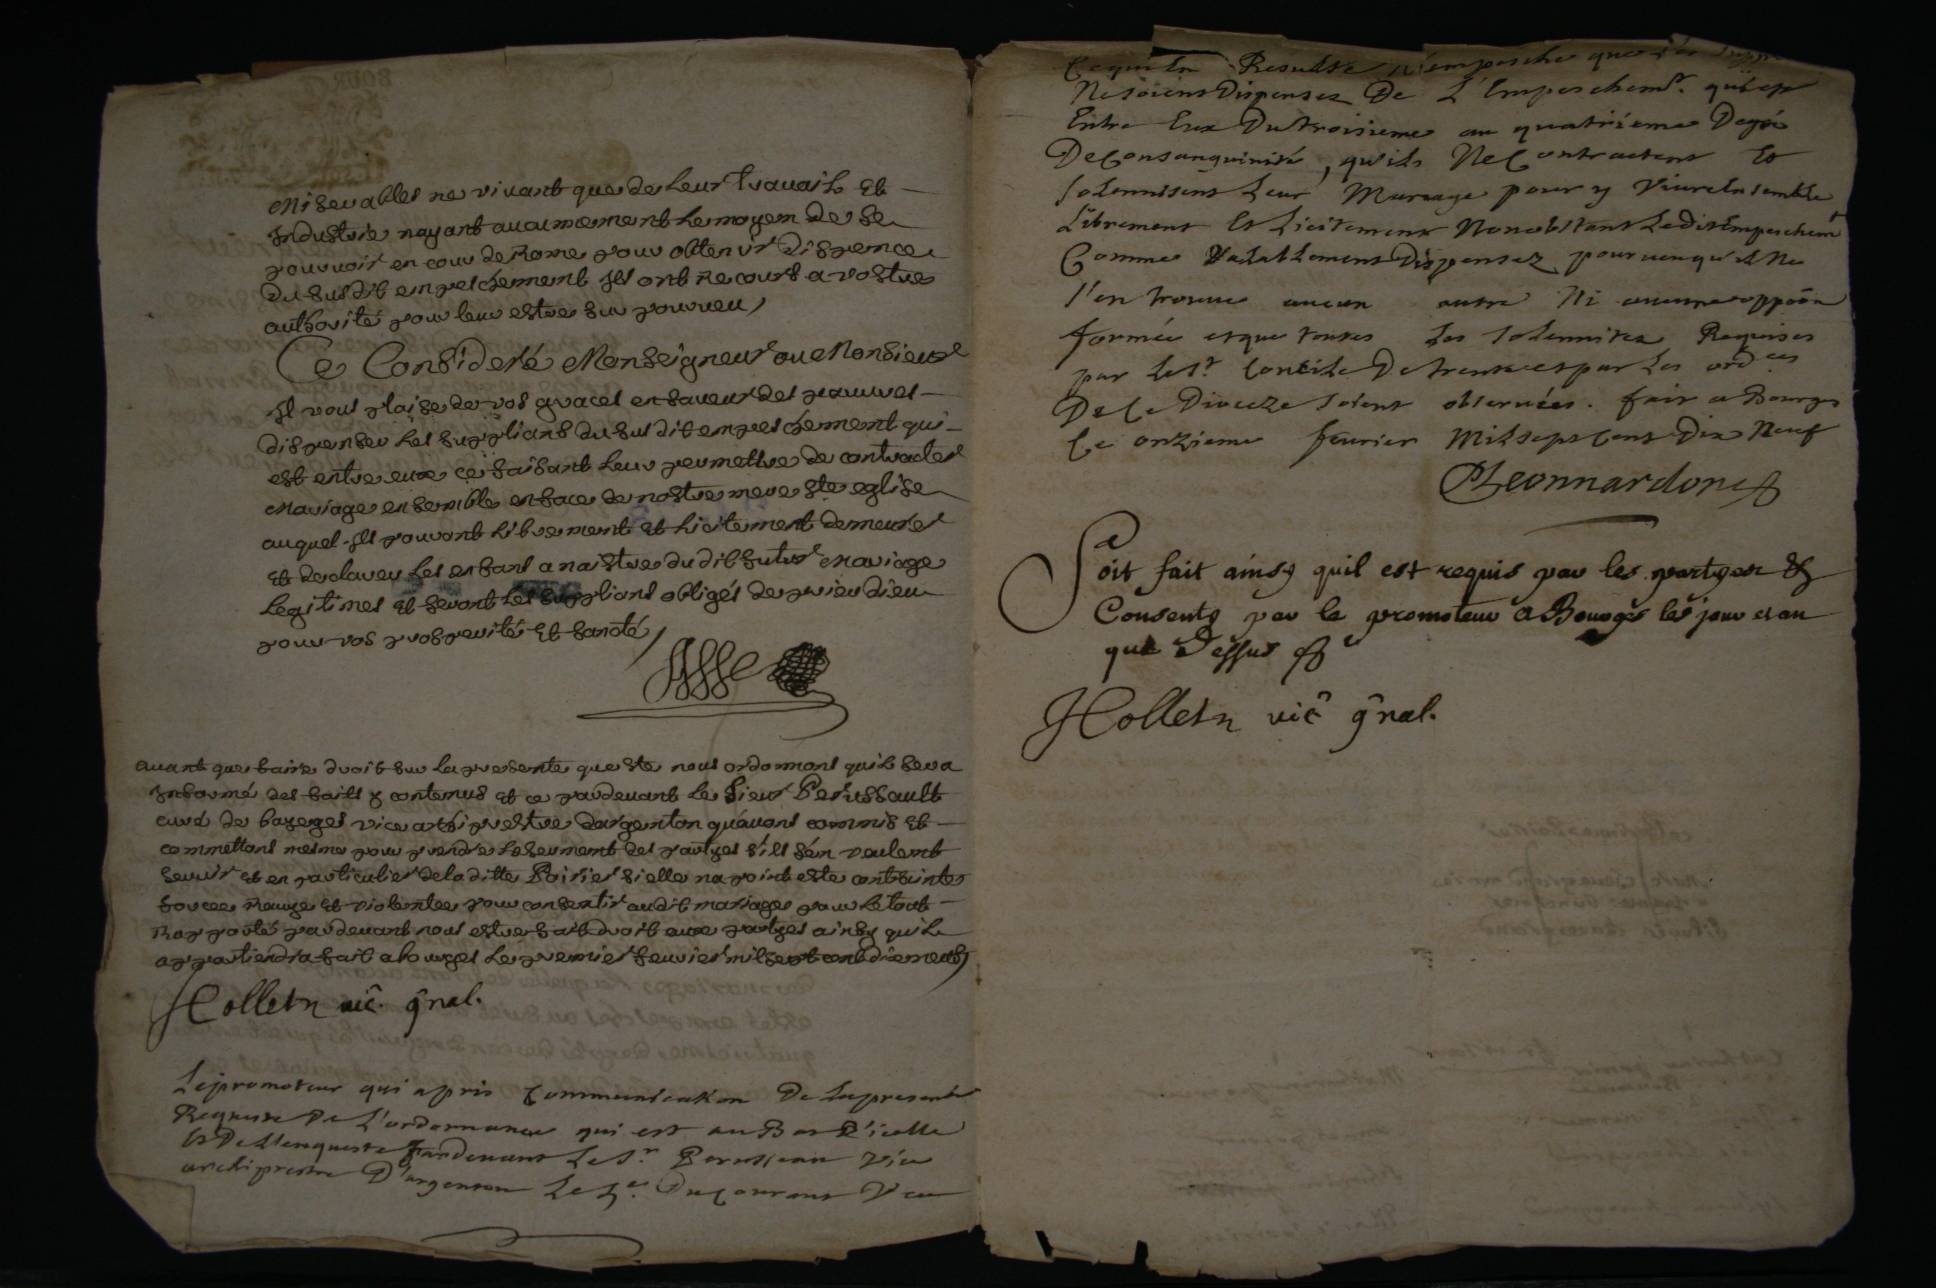 Miserables ne vivant que de leur travail et
Industrie nayant aucunement le moyen de se
pourvoir en cour de Rome pour obtenir dispence
du susdit empeschement Ils ont recours a vostre
authorité pour leur estre sur pourveu
Ce Consideré Monseigneur ou Monsieur
Il vous plaise de vos graces en faveur des pauvres
dispenser les supplians du susdit empeschement qui
est entre eux ce faisant leur permettre de contracter
Mariage ensemble en face de nostre mere ste eglise
auquel Ils pourront librement et licitement demeurer
et declarer les enfans a naistre dudit futur Mariage
legitimes et seront les supplians obligés de prier dieu
pour vos prosperité et santé
avant que faire droit sur la presente queste nous ordonnons quil sera
Informé des faits y contenus et ce pardevant le Sieur Perussault
curé de bazerges vice archiprestre dargenton quavons commis et
commettons mesme pour prendre le serment des partyes s'ils s'en veulent
servir et en particulier de la ditte Poirier si elle na point este contrainte
forcee ravye et violentee pour consentir audit mariage pour le tout
Rapporté pardevant nous estre fait droit aux partyes ainsy quil
appartiendra fait a bourges le premier feuvrier mil sept cent dix neuf
Colletn vic. gñal.
Le promoteur qui a pris Communication De la presente
Requeste De L'ordonnance qui est au Bas D'icelle
Et De Lenqueste pardevant Le Sr Perusseau Vice
archiprestre D'argenton Le Du Courant Veu
Ce qui En Resulte N'empesche que Les
Ne soient Dispensez De L'Empeschemt. qui est
Entre Eux Du troisieme au quatrieme Degré
De Consanguinité, qu'ils Ne Contractent Et
solennisent Leur Mariage pour y Vivre Ensemble
Librement Et Licitement Nonobstant Ledit Empeschemt
Comme Valablement Dispensez pourveu qu'il Ne
s'en trouve aucun autre Ni aucune oppoôn
formée et que toutes Les solennitez Requises
par Le St Concile De trente et par Les ordces
De Ce Diocèze soient observées. fait a Bourges
Ce onzieme fevrier Mil sept Cens Dix Neuf
Leonnardon
Soit fait ainsy quil est requis par les partyes &
Consenty par le promoteur a Bourges les jour et an
que Dessus
Colletn vic gñal.